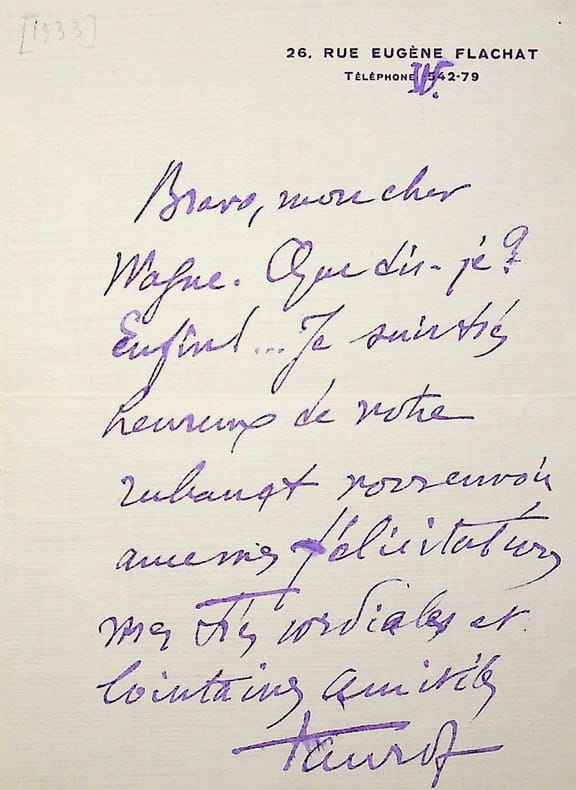 [1933]
26, RUE EUGÈNE FLACHAT
TÉLÉPHONE W. 542-79
Bravo, mon cher
Wague. Que dis-je ?
Enfin ! ... Je suis très
heureux de votre
ruban et vous envoie
avec mes félicitations
mes très cordiales et
lointaines amitiés